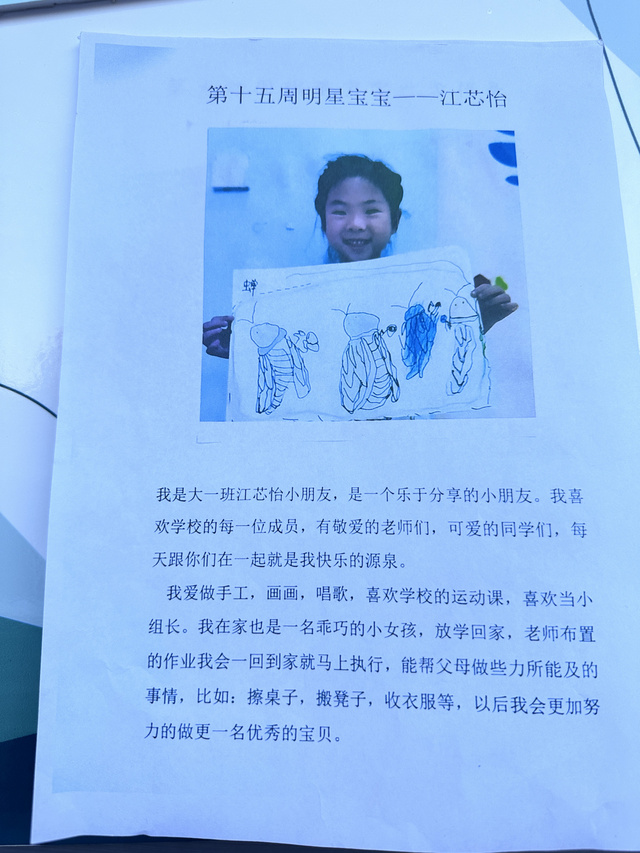 第十五周明星宝宝——江芯怡
蝉
我是大一班江芯怡小朋友，是一个乐于分享的小朋友。我喜
欢学校的每一位成员，有敬爱的老师们，可爱的同学们，每
天跟你们在一起就是我快乐的源泉。
我爱做手工，画画，唱歌，喜欢学校的运动课，喜欢当小
组长。我在家也是一名乖巧的小女孩，放学回家，老师布置
的作业我会一回到家就马上执行，能帮父母做些力所能及的
事情，比如：擦桌子，搬凳子，收衣服等，以后我会更加努
力的做更一名优秀的宝贝。